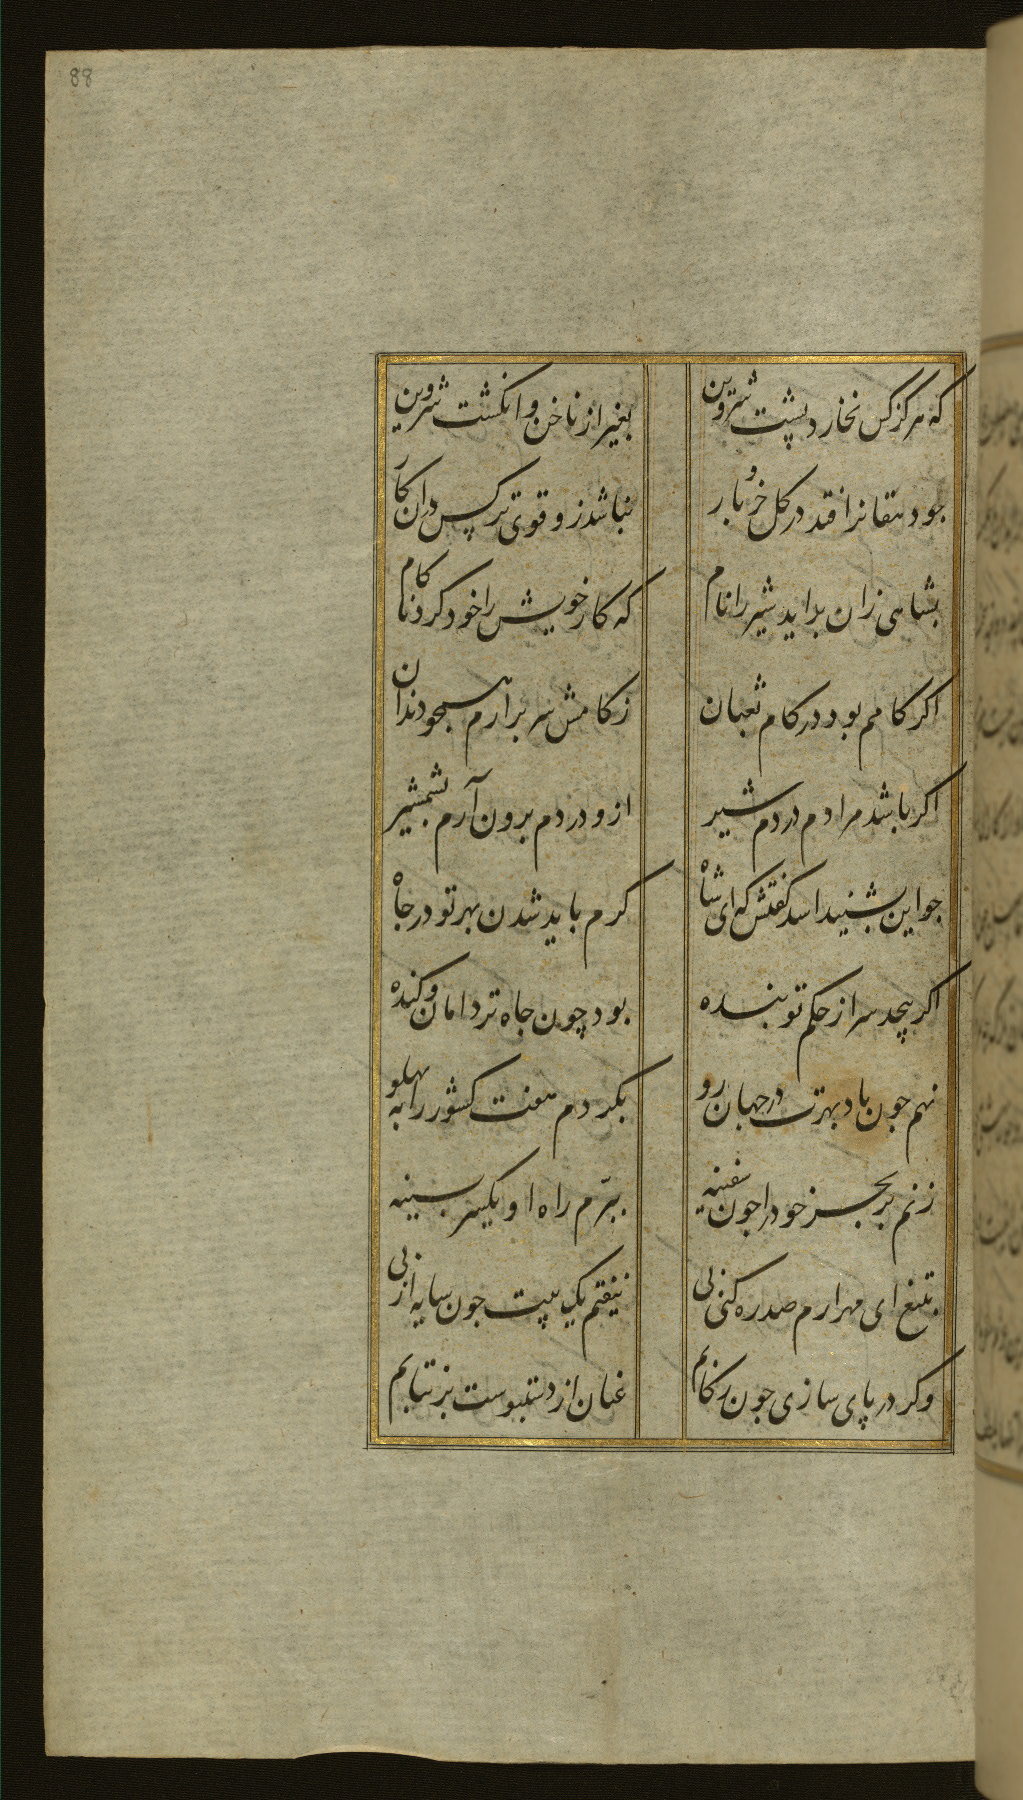 88
که هرکز کس نخارد پشت شروین
بغیر از ناخن و انکشت شروین
جو دهقانرا فتد در کل خر و بار
نباشد زو قوی تر کس دران کار
بشاهی زان براید شیر را نام
که کار خویش را خود کرد ناکام
اکر کامم بود در کام ثعبان
ز کامش سر برارم همجو دندان
اکر باشد مرادم در دم شیر
ازو در دم برون آرم بشمشیر
جو این بشنید اسد کفتش که ای شاه
کرم باید شدن بهر تو در جاه
اکر پیچد سر از حکم تو بنده
بود چون جاه تردامان و کنده
نهم جون باد بهرت در جهان رو
بکردم هفت کشور را به پهلو
زنم بر بحر خود را جون سفینه
ببرّم راه او یکسر بسینه
بتیغ ای مهر ارم صد ره کنی پی
نیفتم یک پیت جون سایه از پی
وکر در پای سازی جون رکابم
عنان از دستبوست بر نتابم